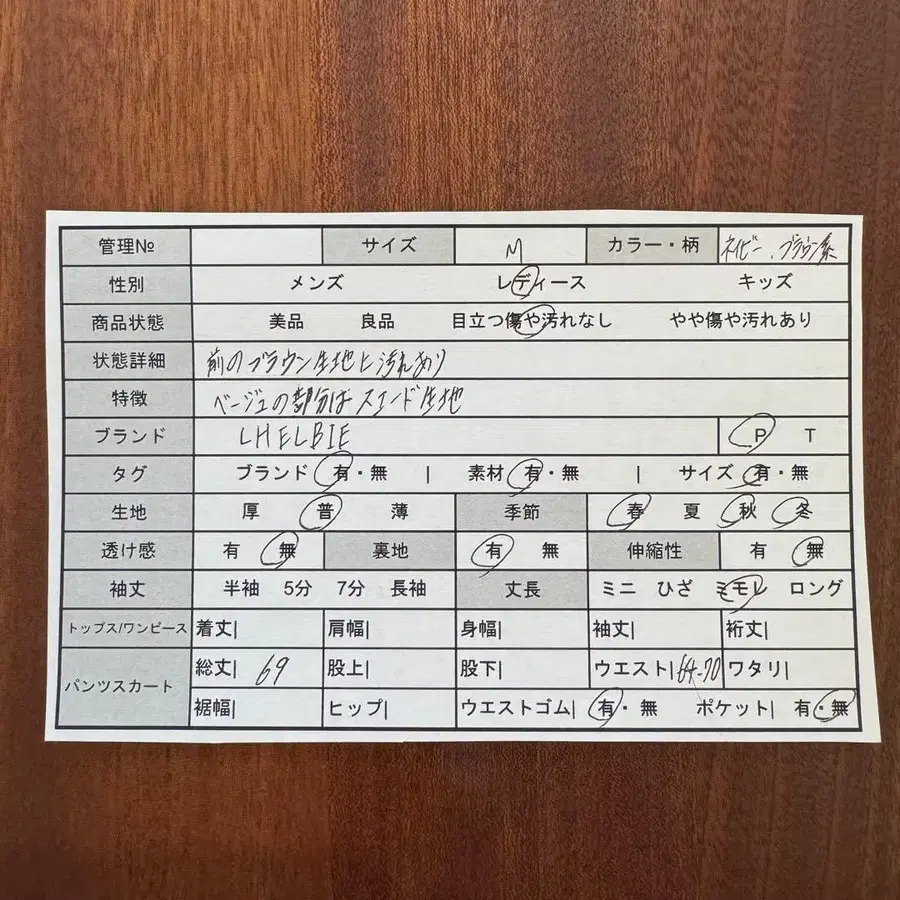 管理№ サイズ M カラー・柄 ネイビー、ブラウン系
性別 メンズ レディース キッズ
商品状態 美品 良品 目立つ傷や汚れなし やや傷や汚れあり
状態詳細 前のブラウン生地に汚れあり
特徴 ベージュの部分はスエード生地
ブランド LHELBIE P T
タグ ブランド 有・無 | 素材 有・無 | サイズ 有・無
生地 厚 普 薄 季節 春 夏 秋 冬
透け感 有 無 裏地 有 無 伸縮性 有 無
袖丈 半袖 5分 7分 長袖 丈長 ミニ ひざ ミモレ ロング
トップス/ワンピース 着丈| 肩幅| 身幅| 袖丈| 裄丈|
パンツスカート 総丈| 69 股上| 股下| ウエスト| 64-70 ワタリ|
裾幅| ヒップ| ウエストゴム| 有・無 ポケット| 有・無